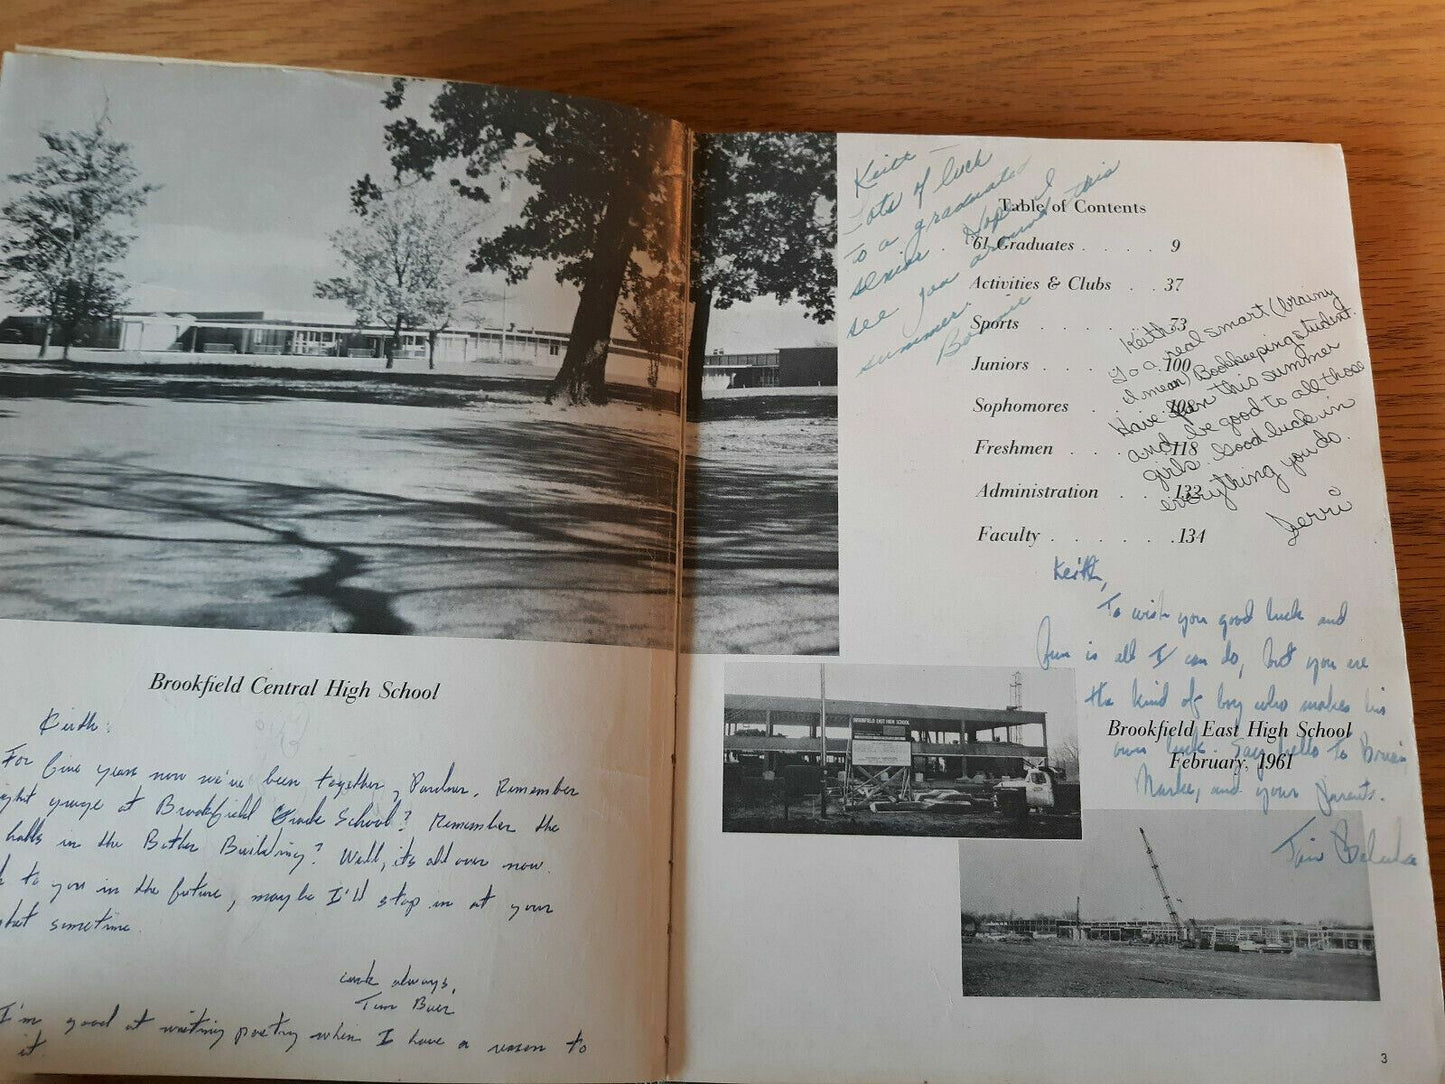 Brookfield Central High School
Keith:
For five years now we've been together, Pardner. Remember
at Brookfield Grade School? Remember the
halls in the Butler Building? Well, its all over now.
to you in the future, maybe I'll stop in at your
sometime.
Luck always,
Tim
I'm good at writing poetry when I have a reason to
it.
Keith –
Lots of luck
to a graduated
senior. Hope I
see you around this
summer.
Bonnie
Table of Contents
'61 Graduates . . . . 9
Activities & Clubs . . 37
Sports . . . . 73
Juniors . . . . 100
Sophomores . . . 108
Freshmen . . . 118
Administration . . 132
Faculty . . . . . . 134
Keith,
To a real smart (brainy
I mean) Bookkeeping student.
Have fun this summer
and be good to all those
girls. Good luck in
everything you do.
Jerri
Keith,
To wish you good luck and
fun is all I can do, but you are
the kind of boy who makes his
own luck. Say hello to
and your parents.
BROOKFIELD EAST HIGH SCHOOL
Brookfield East High School
February, 1961
3